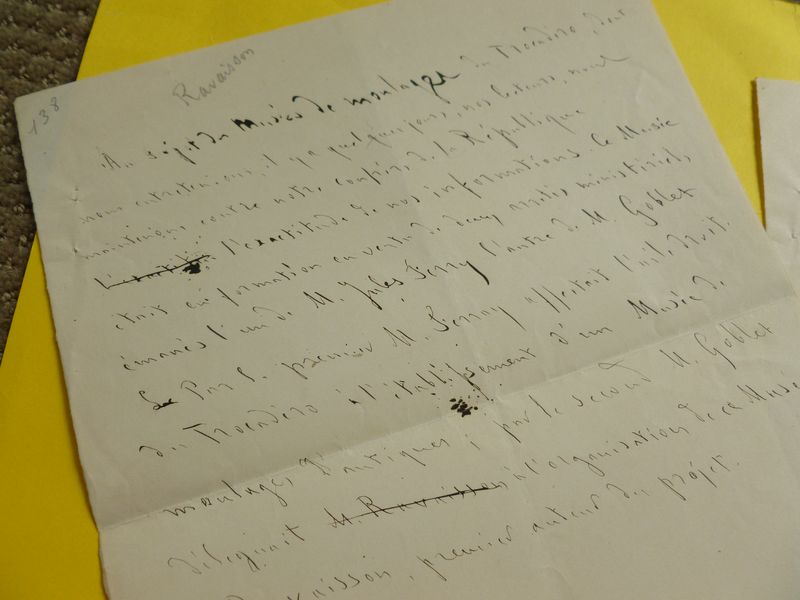 138
Ravaisson
Au sujet du Musée de moulages du Trocadéro, dont
nous entretenions, il y a quelques jours, nos lecteurs, nous
maintenons contre notre confrère de la République
l'exactitude de nos informations. Le Musée
était en formation en vertu de deux arrêtés ministériels,
émanés l'un de M. Jules Ferry l'autre de M. Goblet
Par le premier M. Ferry affectait l'aile droite
du Trocadéro à l'établissement d'un Musée de
moulages d'antiques ; par le second M. Goblet
désignait M. Ravaisson à l'organisation de ce Musée
Ravaisson, premier auteur du projet.